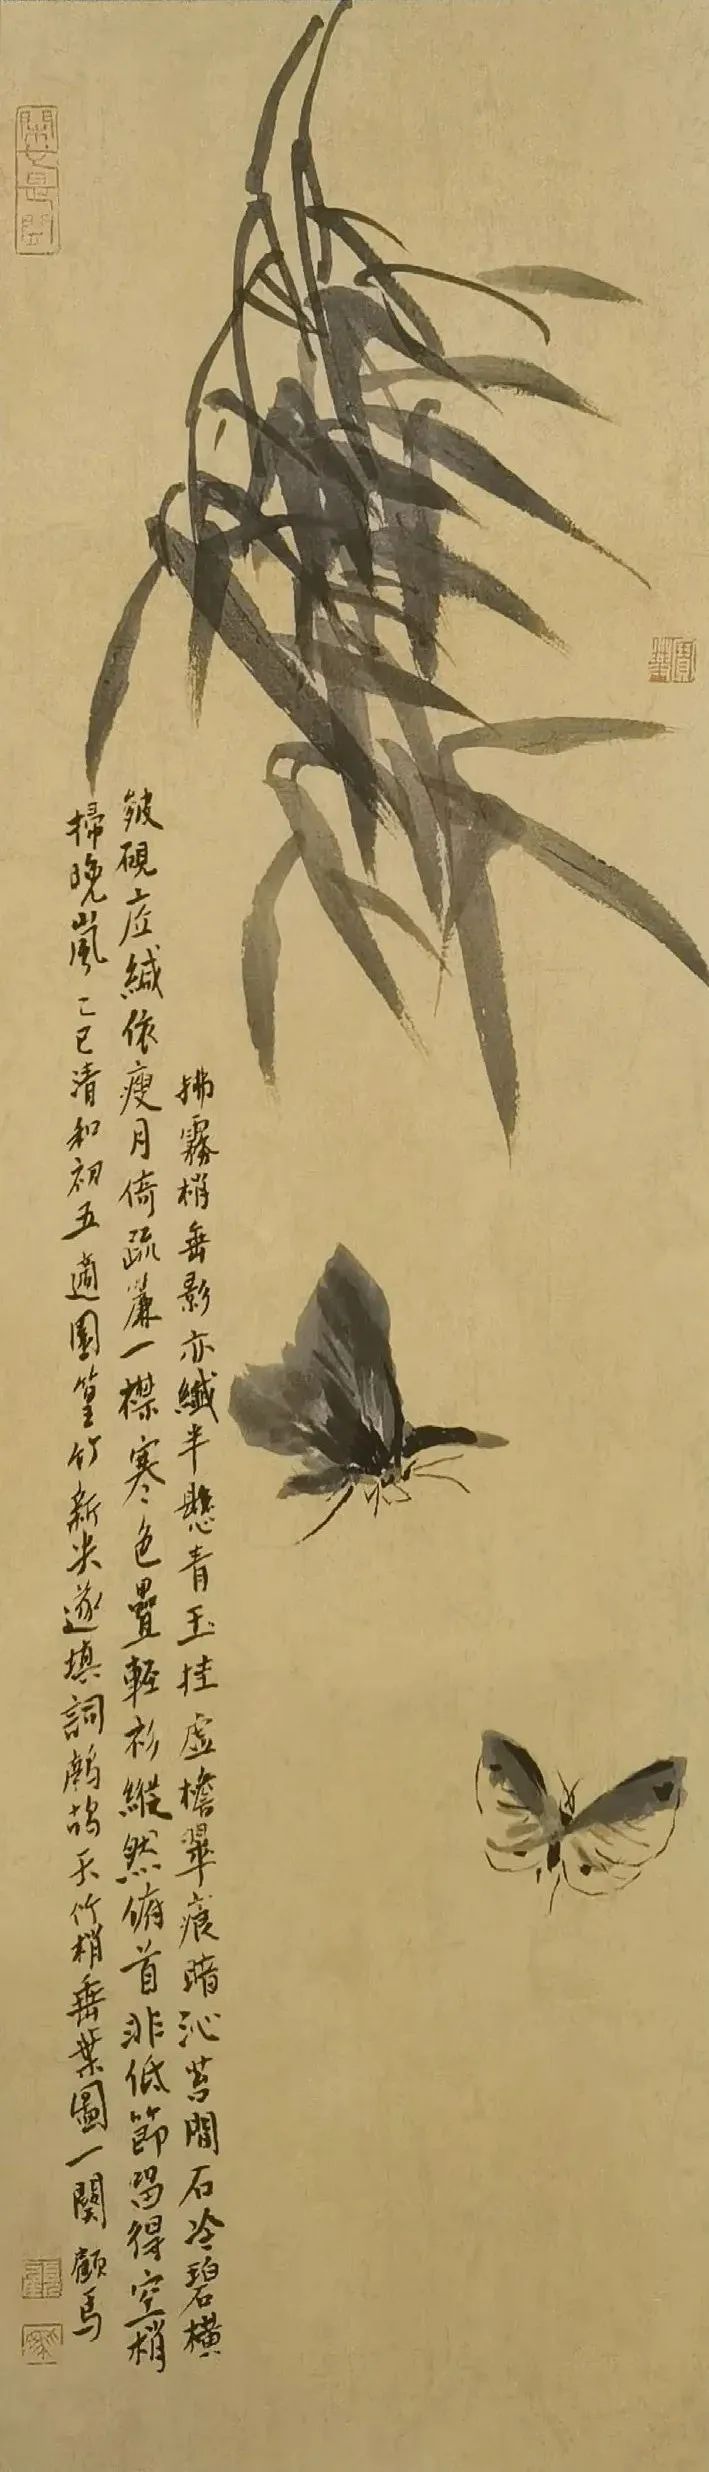 拂霧梢垂影亦纖半懸青玉挂虛檐翠痕暗沁苔間石冷碧橫
皴硯底緘依瘦月倚疏簾一襟寒色疊輕衫縱然俯首非低節留得空梢
掃晚嵐 乙巳清和初五適園篁竹新遂填詞鷓鴣天竹梢垂葉圖一闋 顧馬